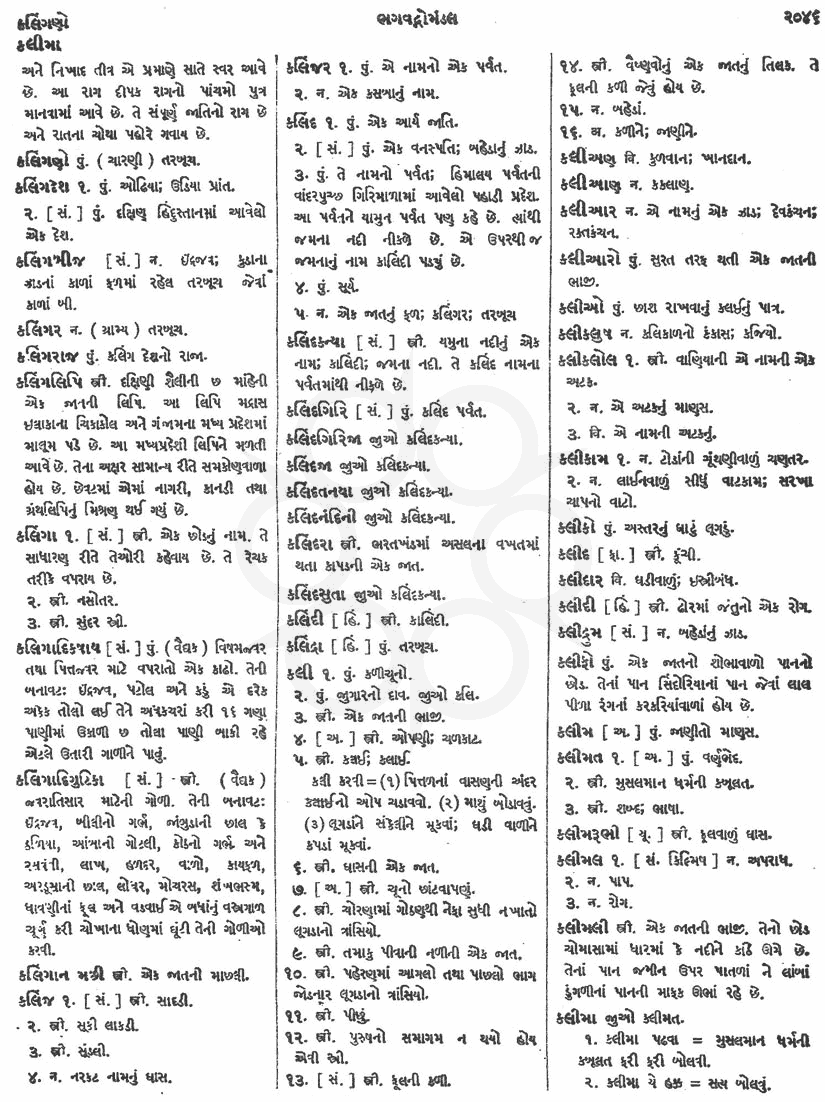 કલિંગણો
ભગવદ્ગોમંડલ
૨૦૪૬
કલીમા
અને નિષાદ તીવ્ર એ પ્રમાણે સાતે સ્વર આવે
છે. આ રાગ દીપક રાગનો પાંચમો પુત્ર
માનવામાં આવે છે. તે સંપૂર્ણ જાતિનો રાગ છે
અને રાતના ચોથા પહોરે ગવાય છે.
કલિંગણો પું. ( ચારણી ) તરબૂચ.
કલિંગદેશ ૧. પું. ઓઢિયા; ઉડિયા પ્રાંત.
૨. [ સં. ] પું. દક્ષિણ હિંદુસ્તાનમાં આવેલો
એક દેશ.
કલિંગબીજ [ સં. ] ન. ઇંદ્રજવ; કુડાના
ઝાડનાં કાળાં ફળમાં રહેલ તરબૂચ જેવાં
કાળાં બી.
કલિંગર ન. ( ગ્રામ્ય ) તરબૂચ.
કલિંગરાજ પું. કલિંગ દેશનો રાજા.
કલિંગલિપિ સ્ત્રી. દક્ષિણી શૈલીની છ માંહેની
એક જાતની લિપિ. આ લિપિ મદ્રાસ
ઇલાકાના ચિકાકોલ અને ગંજામના મધ્ય પ્રદેશમાં
માલૂમ પડે છે. આ મધ્યપ્રદેશી લિપિને મળતી
આવે છે. તેના અક્ષર સામાન્ય રીતે સમકોણવાળા
હોય છે. છેવટમાં એમાં નાગરી, કાનડી તથા
ગ્રંથલિપિનું મિશ્રણ થઈ ગયું છે.
કલિંગા ૧. [ સં. ] સ્ત્રી. એક છોડનું નામ. તે
સાધારણ રીતે તેઓરી કહેવાય છે. તે રેચક
તરીકે વપરાય છે.
૨. સ્ત્રી. નસોતર.
૩. સ્ત્રી. સુંદર સ્ત્રી.
કલિંગાદિકષાય [ સં. ] પું. ( વૈદ્યક ) વિષમજ્વર
તથા પિત્તજ્વર માટે વપરાતો એક કાઢો. તેની
બનાવટ: ઇંદ્રજવ, પટોલ અને કડુ એ દરેક
અકેક તોલો લઈ તેને અધકચરાં કરી ૧૬ ગણા
પાણીમાં ઉકાળી છ તોલા પાણી બાકી રહે
એટલે ઉતારી ગાળીને પાવું.
કલિંગાદિગુટિકા [ સં. ] સ્ત્રી. ( વૈદ્યક )
જ્વરાતિસાર માટેની ગોળી. તેની બનાવટ:
ઇંદ્રજવ, બીલીનો ગર્ભ, જાંબુડાની છાલ કે
ઠળિયા, આંબાની ગોટલી, કોઠનો ગર્ભ અને
રસવંતી, લાખ, હળદર, વાળો, કાયફળ,
અરડૂસાની છાલ, લોધર, મોચરસ, શંખભસ્મ,
ધાવણીનાં ફૂલ અને વડવાઈ એ બધાંનું વસ્ત્રગાળ
ચૂર્ણ કરી ચોખાના ધોણમાં ઘૂંટી તેની ગોળીઓ
કરવી.
કલિંગાન મત્રી સ્ત્રી. એક જાતની માછલી.
કલિંજ ૧. [ સં. ] સ્ત્રી. સાદડી.
૨. સ્ત્રી. સૂકી લાકડી.
૩. સ્ત્રી. સુંડલી.
૪. ન. નરકટ નામનું ઘાસ.
કલિંજર ૧. પું. એ નામનો એક પર્વત.
૨. ન. એક કસબાનું નામ.
કલિંદ ૧. પું. એક આર્ય જાતિ.
૨. [ સં. ] પું. એક વનસ્પતિ; બહેડાનું ઝાડ.
૩. પું. તે નામનો પર્વત; હિમાલય પર્વતની
વાંદરપુચ્છ ગિરિમાળામાં આવેલો પહાડી પ્રદેશ.
આ પર્વતને યામુન પર્વત પણ કહે છે. ત્યાંથી
જમના નદી નીકળે છે. એ ઉપરથી જ
જમનાનું નામ કાલિંદી પડ્યું છે.
૪. પું. સૂર્ય.
૫. ન. એક જાતનું ફળ; કલિંગર; તરબૂચ
કલિંદકન્યા [ સં. ] સ્ત્રી. યમુના નદીનું એક
નામ; કાલિંદી; જમના નદી. તે કલિંદ નામના
પર્વતમાંથી નીકળે છે.
કલિંદગિરિ [ સં. ] પું. કલિંદ પર્વત.
કલિંદગિરિજા જુઓ કલિંદકન્યા.
કલિંદજા જુઓ કલિંદકન્યા.
કલિંદતનયા જુઓ કલિંદકન્યા.
કલિંદનંદિની જુઓ કલિંદકન્યા.
કલિંદરા સ્ત્રી. ભરતખંડમાં અસલના વખતમાં
થતા કાપડની એક જાત.
કલિંદસુતા જુઓ કલિંદકન્યા.
કલિંદી [ હિં. ] સ્ત્રી. કાલિંદી.
કલિંદ્રા [ હિં. ] પું. તરબૂચ.
કલી ૧. પું. કળીચૂનો.
૨. પું. જુગારનો દાવ. જુઓ કલિ.
૩. સ્ત્રી. એક જાતની ભાજી.
૪. [ અ. ] સ્ત્રી. ઓપણી; ચળકાટ.
૫. સ્ત્રી. કલઈ; કલાઈ.
કલી કરવી = (૧) પિત્તળનાં વાસણની અંદર
કલાઈનો ઓપ ચડાવવો. (૨) માથું બોડાવવું.
(૩) લૂગડાંને સંકેલીને મૂકવાં; ઘડી વાળીને
કપડાં મૂકવાં.
૬. સ્ત્રી. ઘાસની એક જાત.
૭. [ અ. ] સ્ત્રી. ચૂનો છાંટવાપણું.
૮. સ્ત્રી. ચોરણામાં ગોઠણથી નેફા સુધી નખાતો
લૂગડાનો ત્રાંસિયો.
૯. સ્ત્રી. તમાકુ પીવાની નળીની એક જાત.
૧૦. સ્ત્રી. પહેરણમાં આગલો તથા પાછલો ભાગ
જોડનાર લૂગડાનો ત્રાંસિયો.
૧૧. સ્ત્રી. પીછું.
૧૨. સ્ત્રી. પુરુષનો સમાગમ ન થયો હોય
એવી સ્ત્રી.
૧૩. [ સં. ] સ્ત્રી. ફૂલની કળી.
૧૪. સ્ત્રી. વૈષ્ણવોનું એક જાતનું તિલક. તે
ફૂલની કળી જેવું હોય છે.
૧૫. ન. બહેડાં.
૧૬. અ. કળીને; જાણીને.
કલીઅણ વિ. કુળવાન; ખાનદાન.
કલીઆણ ન. કલ્યાણ.
કલીઆર ન. એ નામનું એક ઝાડ; દેવકંચન;
રક્તકંચન.
કલીઆરો પું. સુરત તરફ થતી એક જાતની
ભાજી.
કલીઓ પું. છાશ રાખવાનું કલઈનું પાત્ર.
કલીકલુષ ન. કલિકાળનો કંકાસ; કજિયો.
કલીકલોલ ૧. સ્ત્રી. વાણિયાની એ નામની એક
અટક.
૨. ન. એ અટકનું માણસ.
૩. વિ. એ નામની અટકનું.
કલીકામ ૧. ન. ટોડાંની ગૂંથણીવાળું ચણતર.
૨. ન. લાઈનવાળું સીધું વાટકામ; સરખા
ચાપનો વાટો.
કલીકો પું. અસ્તરનું ઘાટું લૂગડું.
કલીદ [ ફા. ] સ્ત્રી. કૂંચી.
કલીદાર વિ. ઘડીવાળું; ઇસ્ત્રીબંધ.
કલીદી [ હિં. ] સ્ત્રી. ઢોરમાં જંતુનો એક રોગ.
કલીદ્રુમ [ સં. ] ન. બહેડાંનું ઝાડ.
કલીફો પું. એક જાતનો શોભાવાળો પાનનો
છોડ. તેનાં પાન સિંદોરિયાનાં પાન જેવાં લાલ
પીળા રંગનાં કરકરિયાંવાળાં હોય છે.
કલીમ [ અ. ] પું. જાણીતો માણસ.
કલીમત ૧. [ અ. ] પું. વર્ણભેદ.
૨. સ્ત્રી. મુસલમાન ધર્મની કબૂલત.
૩. સ્ત્રી. શબ્દ; ભાષા.
કલીમરૂભો [ યૂ. ] સ્ત્રી. ફૂલવાળું ઘાસ.
કલીમલ ૧. [ સં. કિલ્મિષ ] ન. અપરાધ.
૨. ન. પાપ.
૩. ન. રોગ.
કલીમલી સ્ત્રી. એક જાતની ભાજી. તેનો છોડ
ચોમાસામાં ધારમાં કે નદીને કાંઠે ઊગે છે.
તેનાં પાન જમીન ઉપર પાતળાં ને લાંબાં
ડુંગળીનાં પાનની માફક ઊભાં રહે છે.
કલીમા જુઓ કલીમત.
૧. કલીમા પઢવા = મુસલમાન ધર્મની
કબૂલત ફરી ફરી બોલવી.
૨. કલીમા યે હક્ક = સત્ય બોલવું.